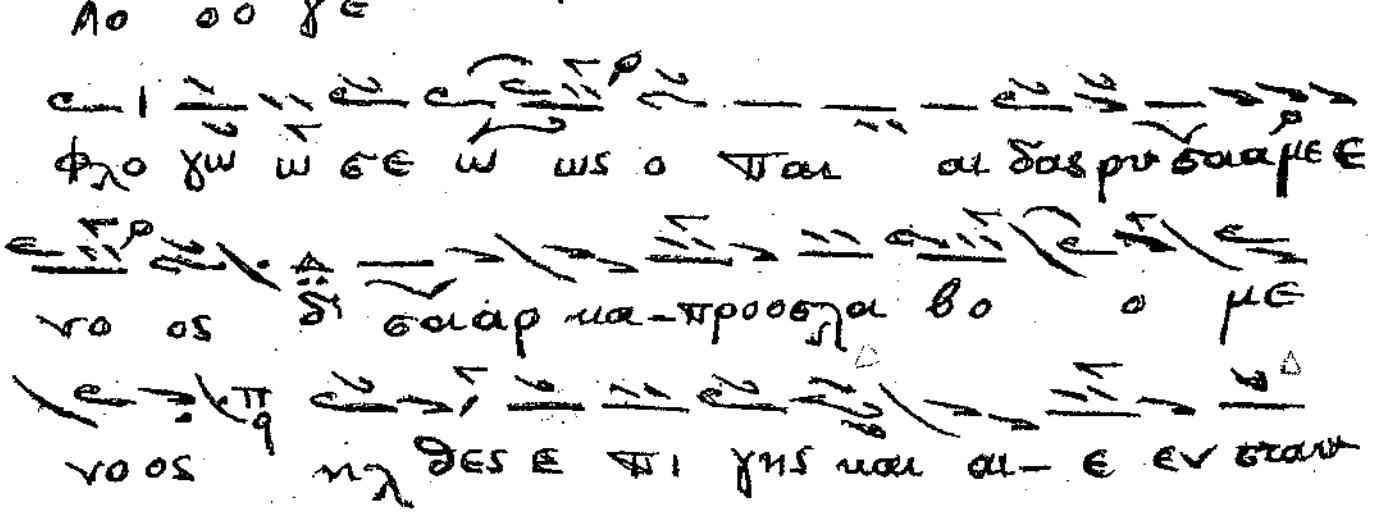 λο οο γε
φλο γω ω σε ω ως ο παι αι δας ρυ σαιαμε ε
νο ος δι σαιαρ κα-προοσλα βο ο με
νο ος ηλ θες ε πι γης και αι- ε εν σταυ